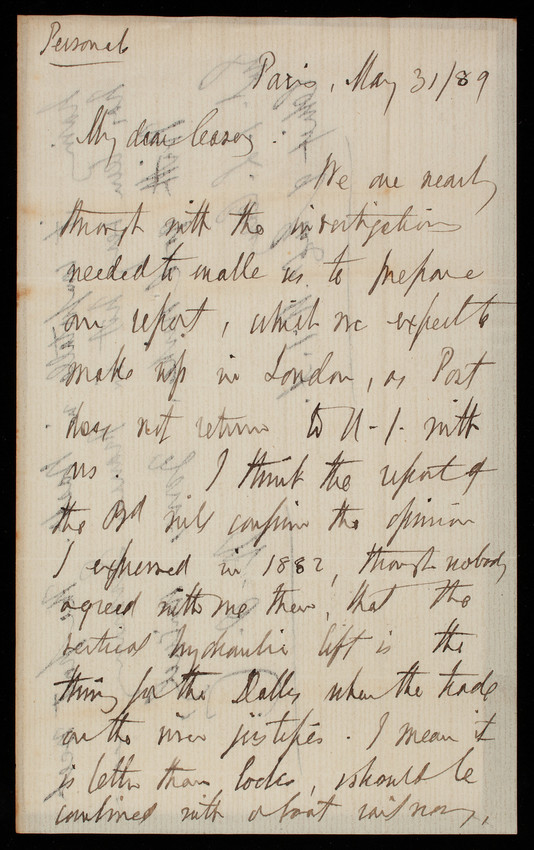 Personal
Paris, May 31/89
My dear Casey:
We are nearly
through with the investigations
needed to enable us to prepare
our report, which we expect to
make up in London, as Post
does not return to U.S. with
us. I think the report of
the Bd will confirm the opinion
I expressed in 1882, though nobody
agreed with me then, that the
vertical hydraulic lift is the
thing for the Dalles when the trade
on the river justifies. I mean it
is better than locks, & should be
combined with a boat railway,